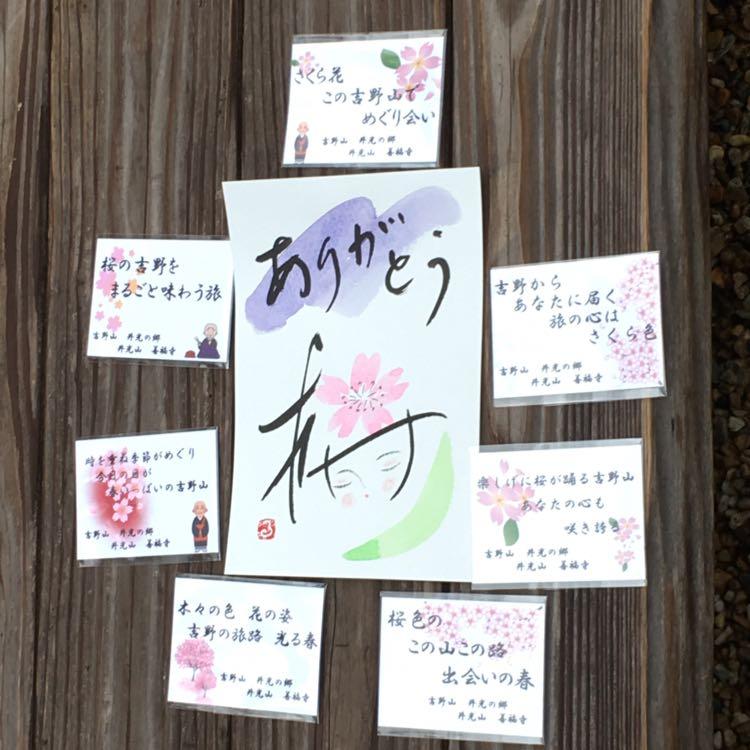 さくら花
この吉野山で
めぐり会い
吉野山 井光の郷
井光山 善福寺
ありがとう
桜
桜の吉野を
まるごと味わう旅
吉野山 井光の郷
井光山 善福寺
吉野から
あなたに届く
旅の心は
さくら色
吉野山 井光の郷
井光山 善福寺
時を重ね季節がめぐり
今日の日が
春いっぱいの吉野山
吉野山 井光の郷
井光山 善福寺
楽しげに桜が踊る吉野山
あなたの心も
咲き誇る
吉野山 井光の郷
井光山 善福寺
木々の色 花の姿
吉野の旅路 光る春
吉野山 井光の郷
井光山 善福寺
桜色の
この山この路
出会いの春
吉野山 井光の郷
井光山 善福寺